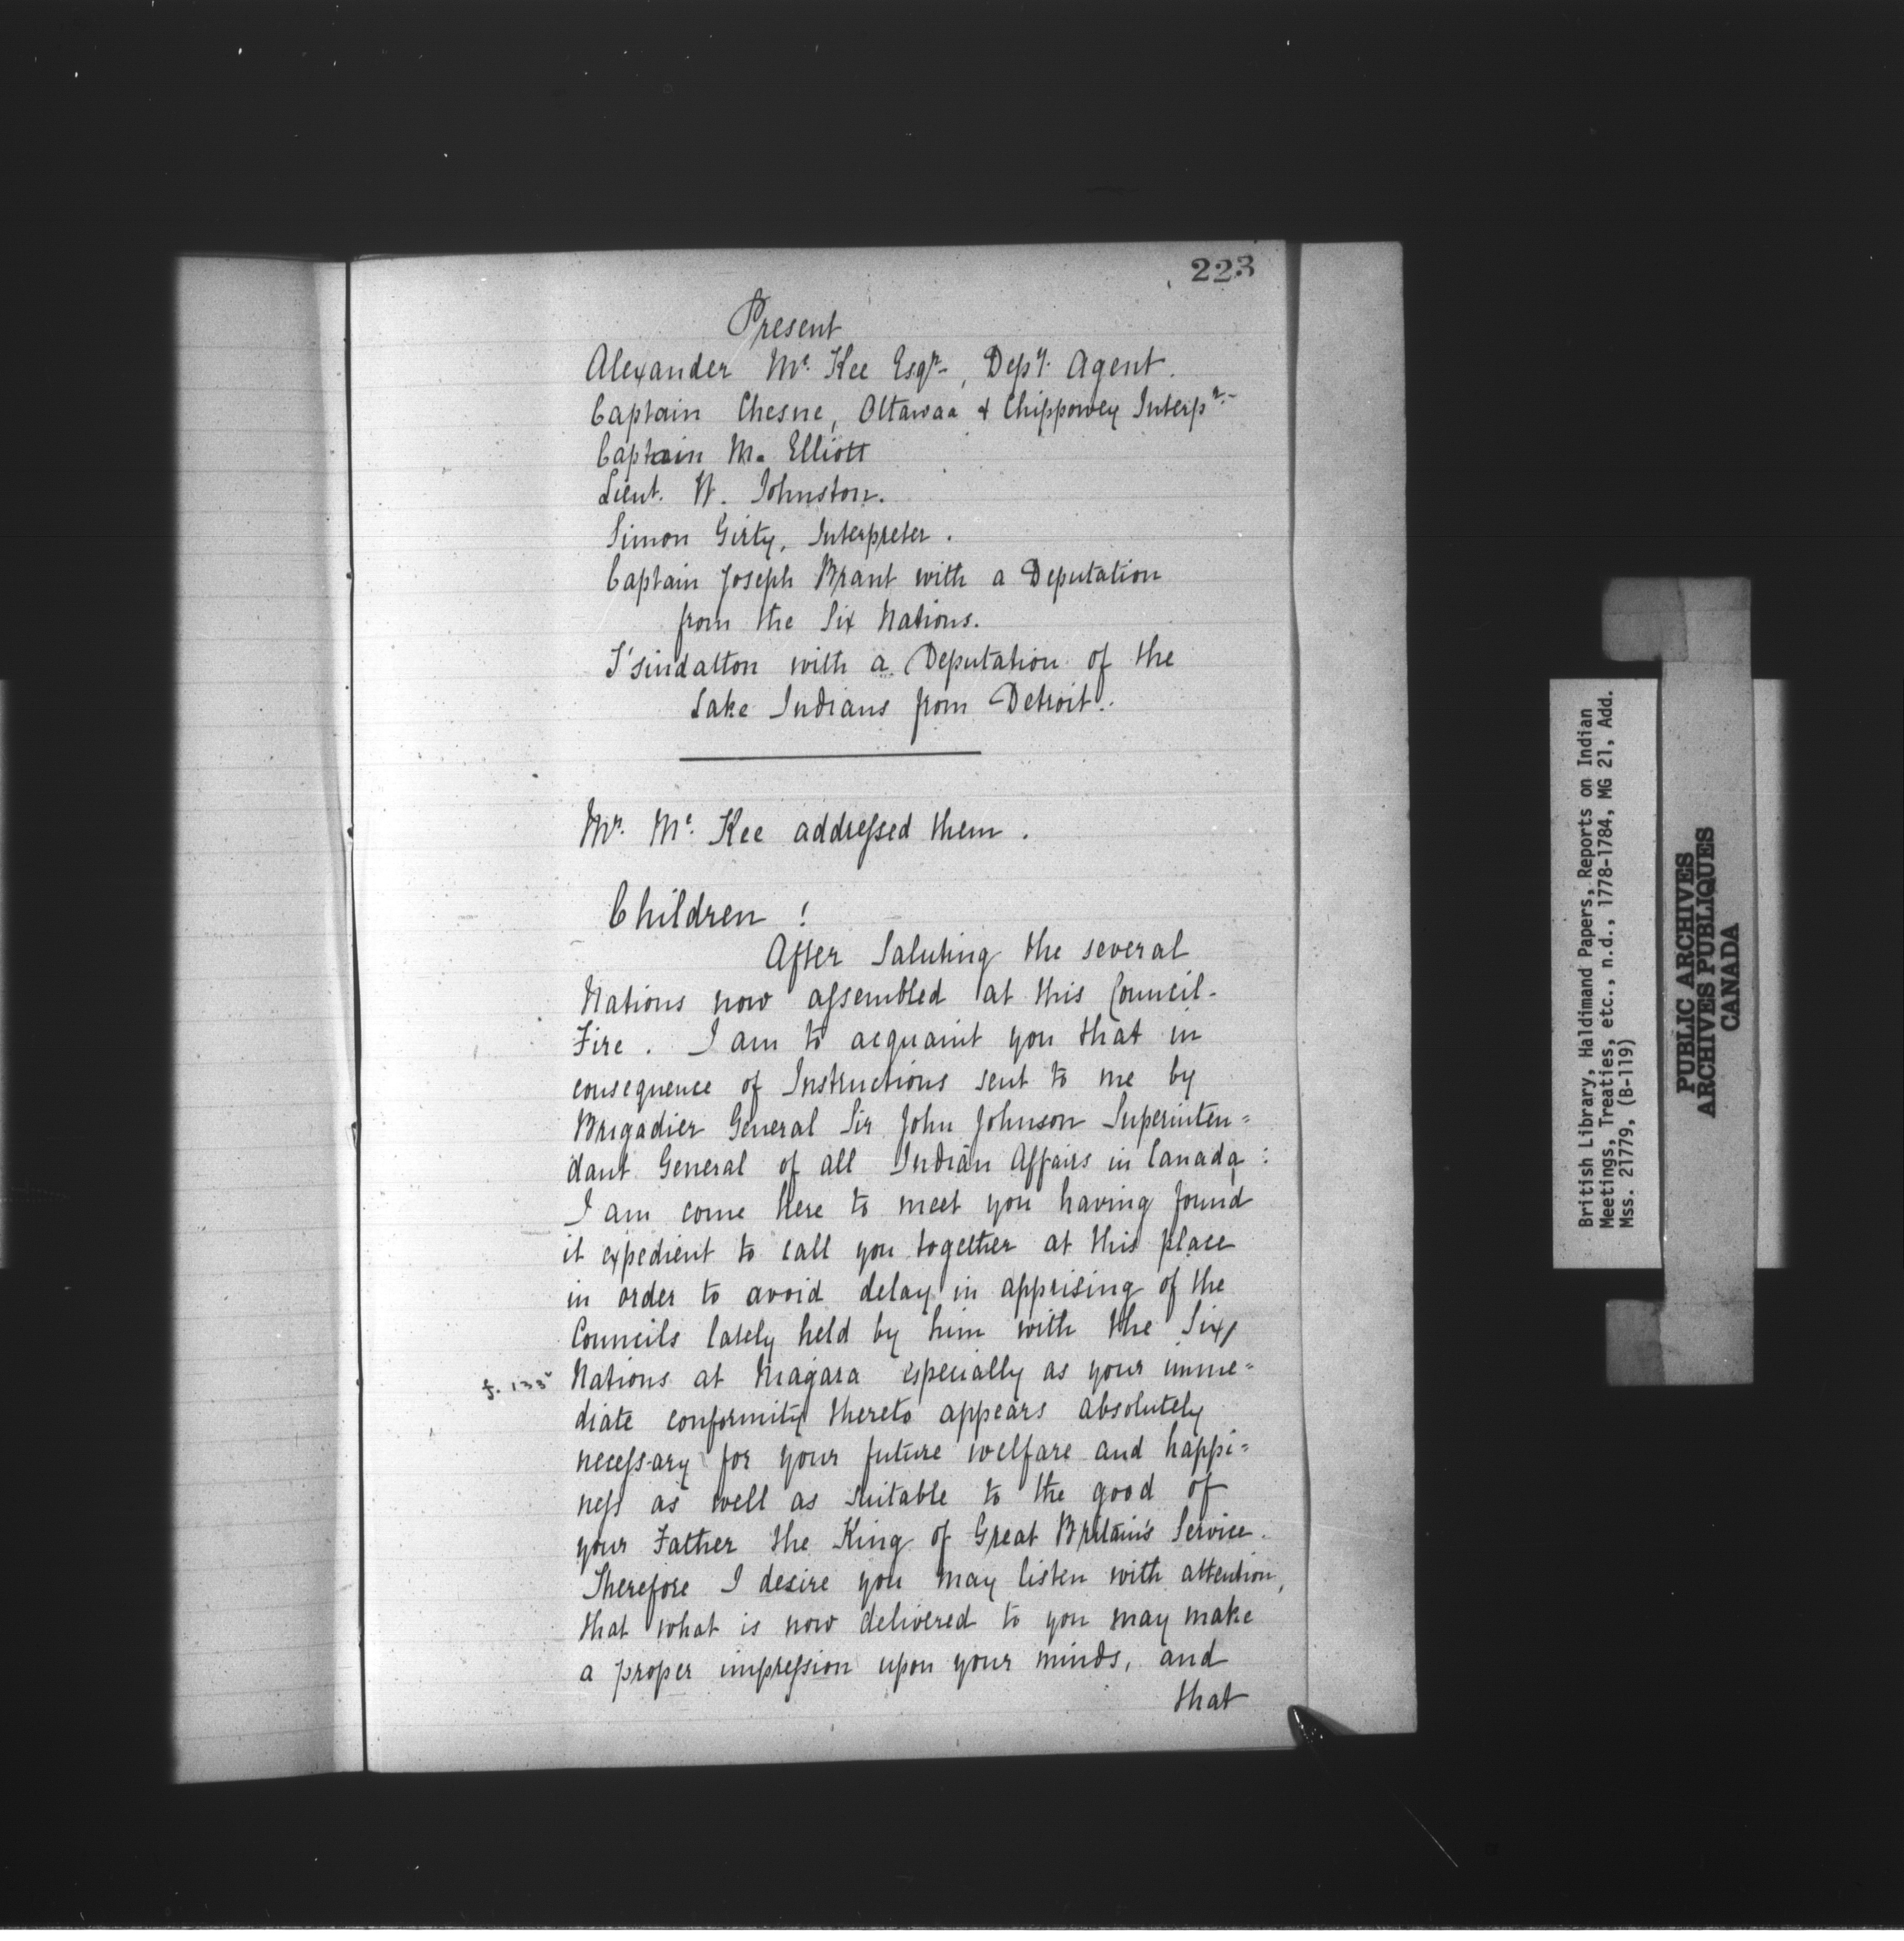 223
Present
Alexander Mc. Kee Esqr., Depy. Agent.
Captain Chesne, Ottawaa & Chippowey Interpr.
Captain M. Elliott
Lieut. W. Johnston.
Simon Girty, Interpreter.
Captain Joseph Brant with a Deputation
from the Six Nations.
T'sindatton with a Deputation of the
Lake Indians from Detroit.
Mr. Mc. Kee addressed them.
Children!
After Saluting the several
Nations now assembled at this Council-
Fire. I am to acquaint you that in
consequence of Instructions sent to me by
Brigadier General Sir John Johnson Superinten=
dant General of all Indian Affairs in Canada:
I am come here to meet you having found
it expedient to call you together at this place
in order to avoid delay in apprising of the
Councils lately held by him with the Six
f. 133v
Nations at Niagara especially as your imme=
diate conformity thereto appears absolutely
necessary for your future welfare and happi=
ness as well as suitable to the good of
your Father the King of Great Britain's Service.
Therefore I desire you may listen with attention,
that what is now delivered to you may make
a proper impression upon your minds, and
that
British Library, Haldimand Papers, Reports on Indian
Meetings, Treaties, etc., n.d., 1778-1784, MG 21, Add.
Mss. 21779, (B-119)
PUBLIC ARCHIVES
ARCHIVES PUBLIQUES
CANADA